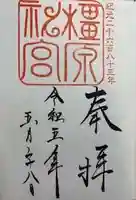 紀元二千六百八十三年
奉拝
橿原
神宮
令和五年
五月二十八日